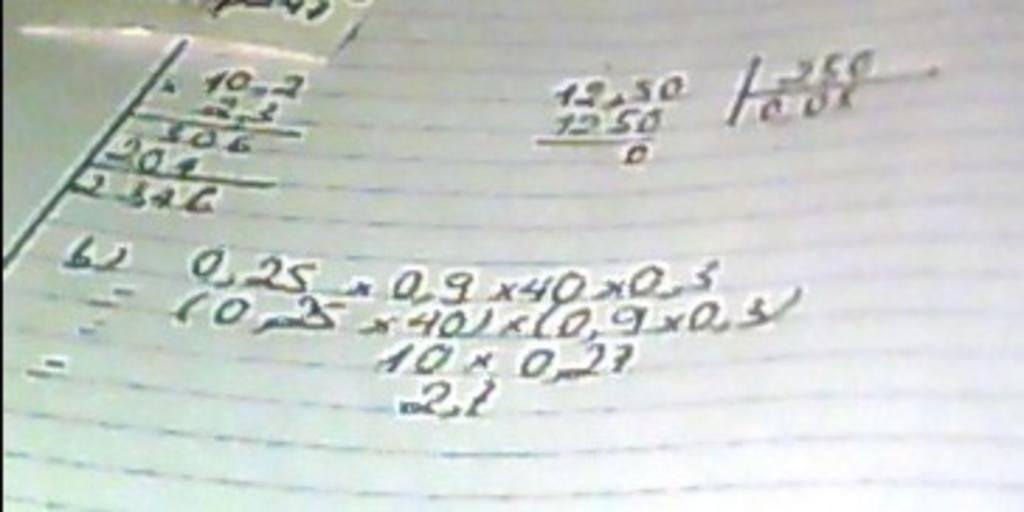 10,2
2,3
306
204
2346
12,50
250
1250
0
b) 0,25 × 0,9 × 40 × 0,3
= (0,25 × 40) × (0,9 × 0,3)
= 10 × 0,27